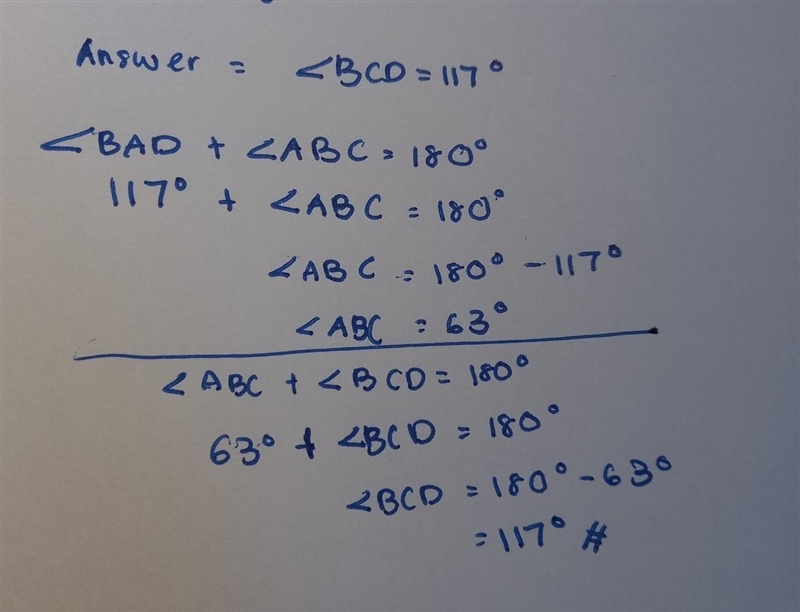 Answer = ∠BCD = 117°
∠BAD + ∠ABC = 180°
117° + ∠ABC = 180°
∠ABC = 180° - 117°
∠ABC = 63°
∠ABC + ∠BCD = 180°
63° + ∠BCD = 180°
∠BCD = 180° - 63°
= 117° #